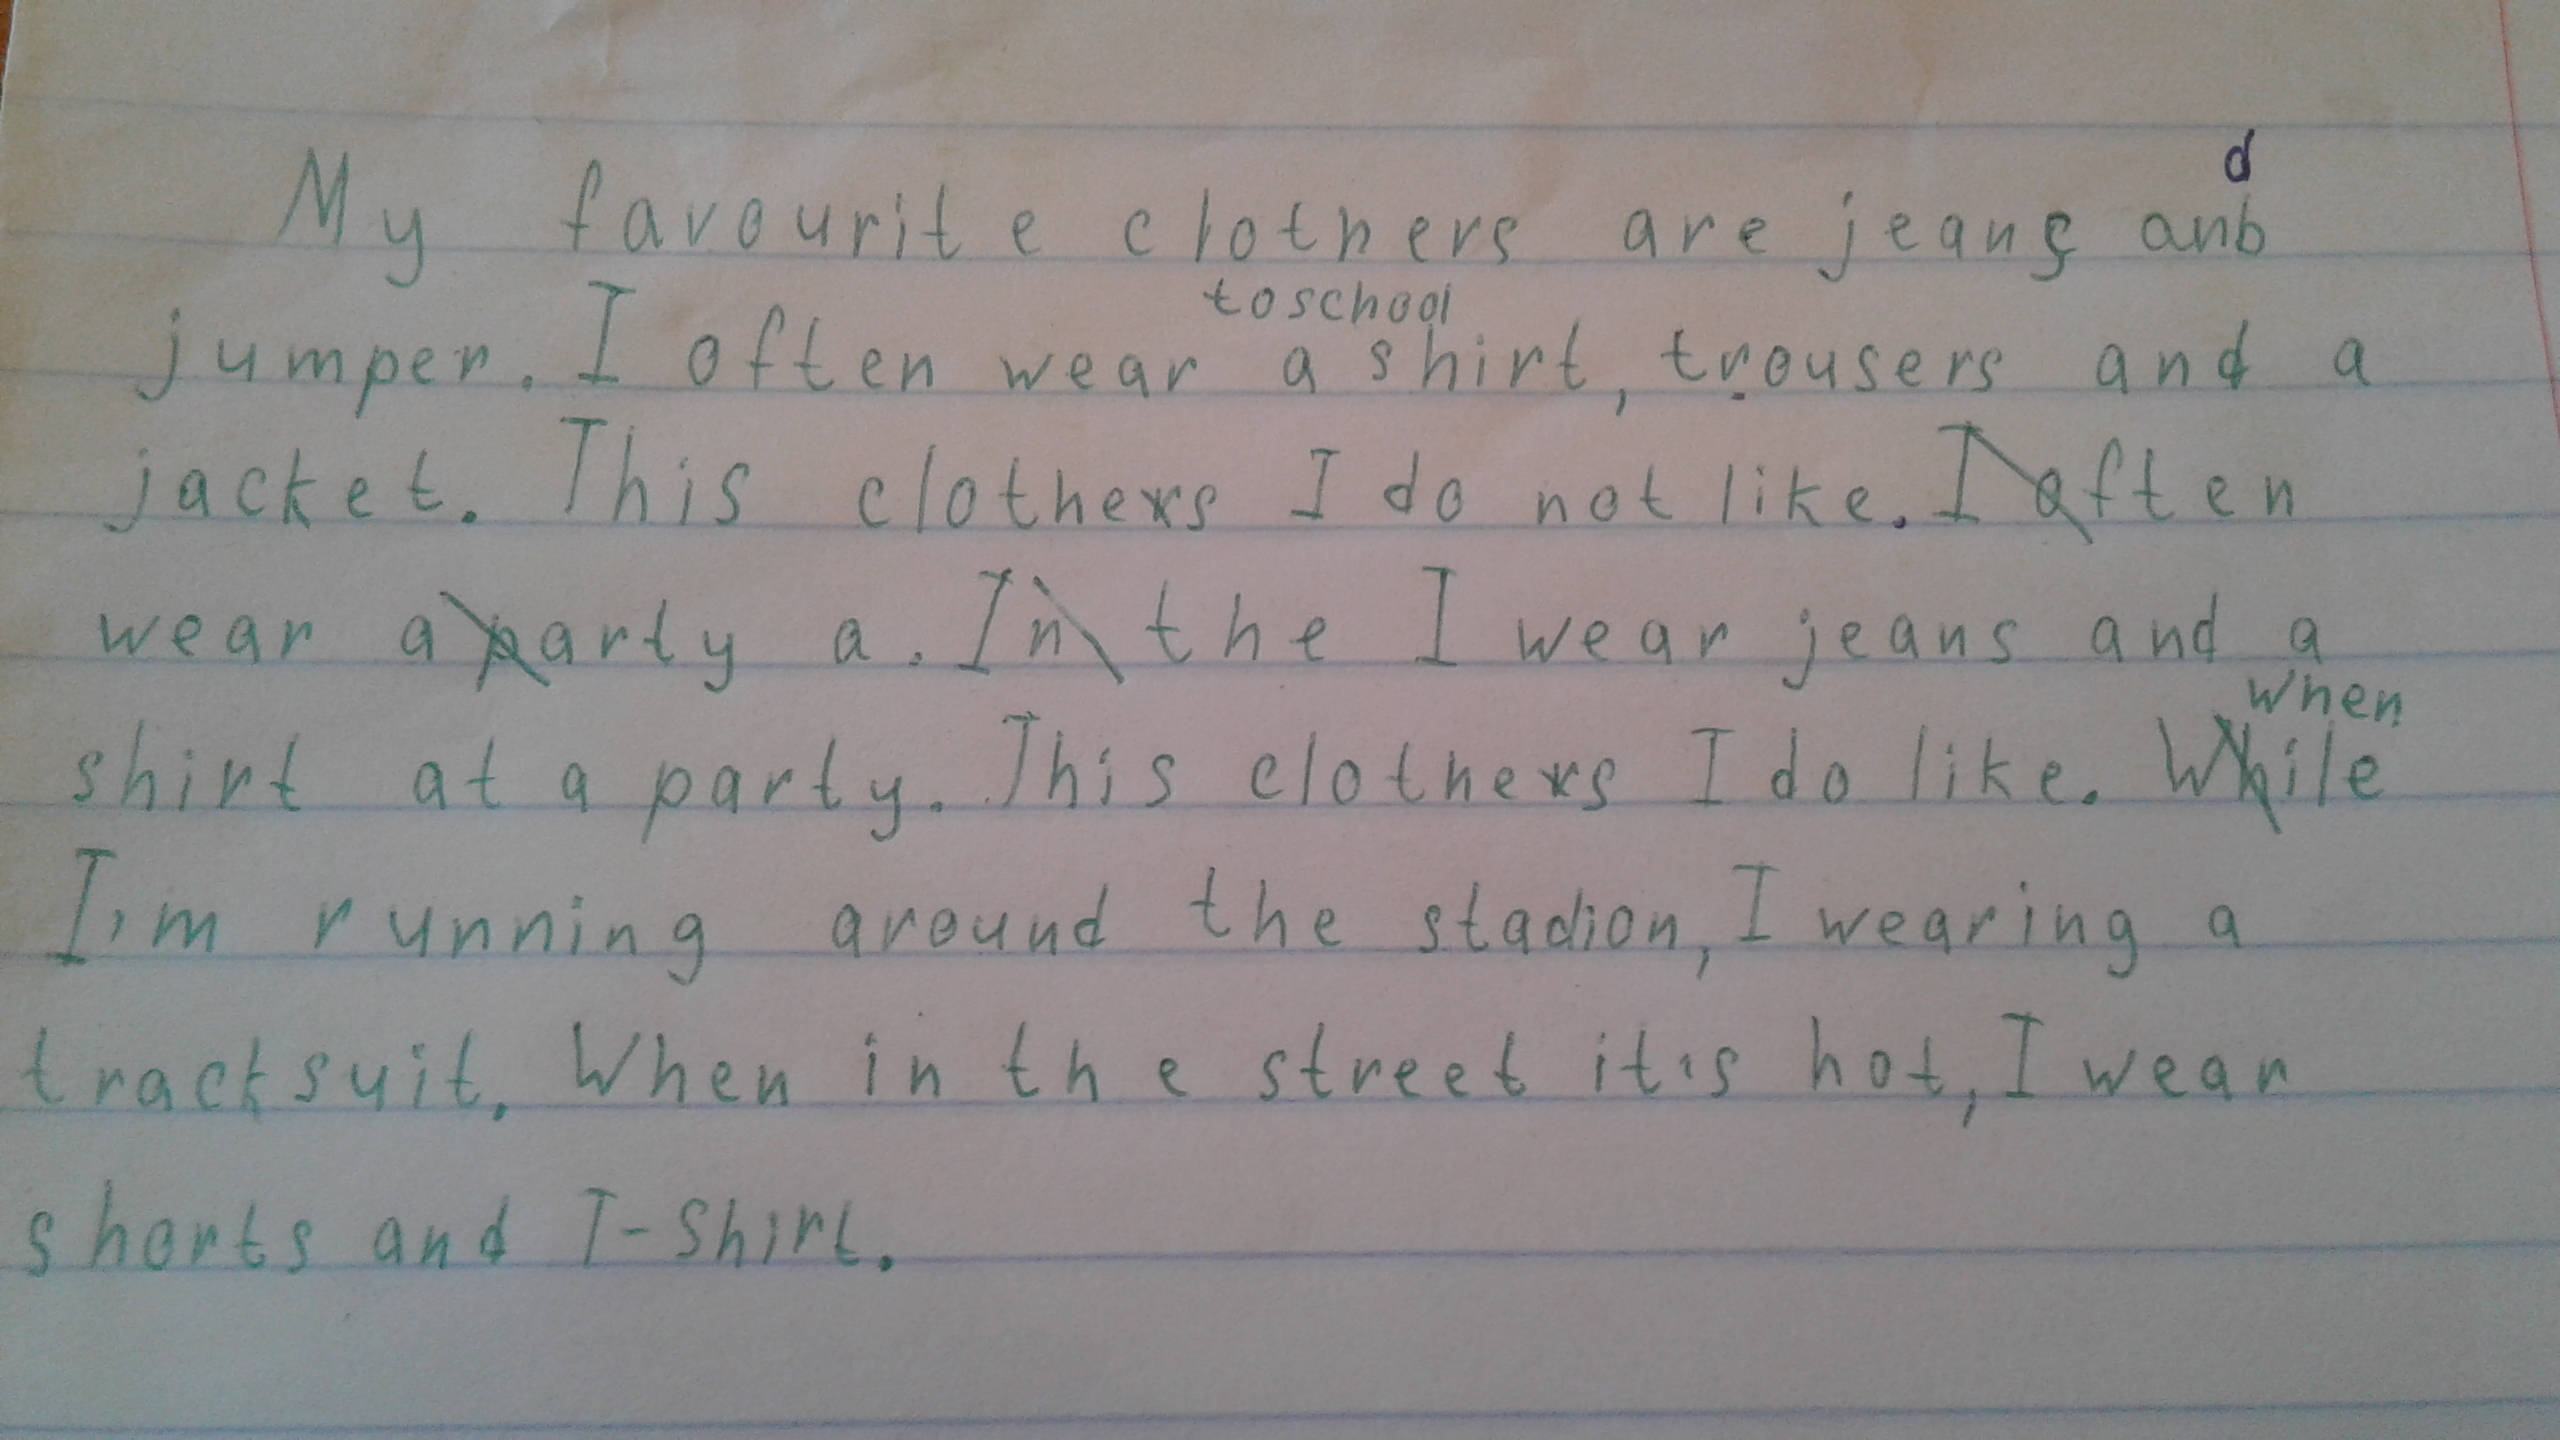 d
My favourite clothers are jeans anb
to school
jumper. I often wear a shirt, trousers and a
jacket. This clothers I do not like. I often
wear a party a. In the I wear jeans and a
when
shirt at a party. This clothers I do like. While
I'm running around the stadion, I wearing a
tracksuit. When in the street it's hot, I wear
shorts and T-Shirt.